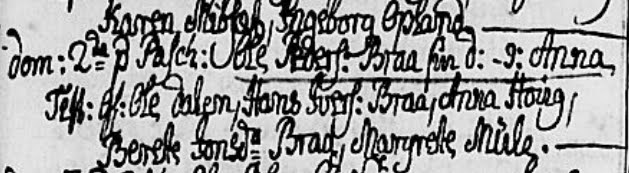 Karen Mibkaß, Ingeborg Opland
dom: 2da p Pasch: Ole Peders: Braa hin d: -9: Anna,
Test: ef: Ole dalem, Hans Ivers: Braa, Anna Houg,
Berete tonsda Braa, Margrete Müls.